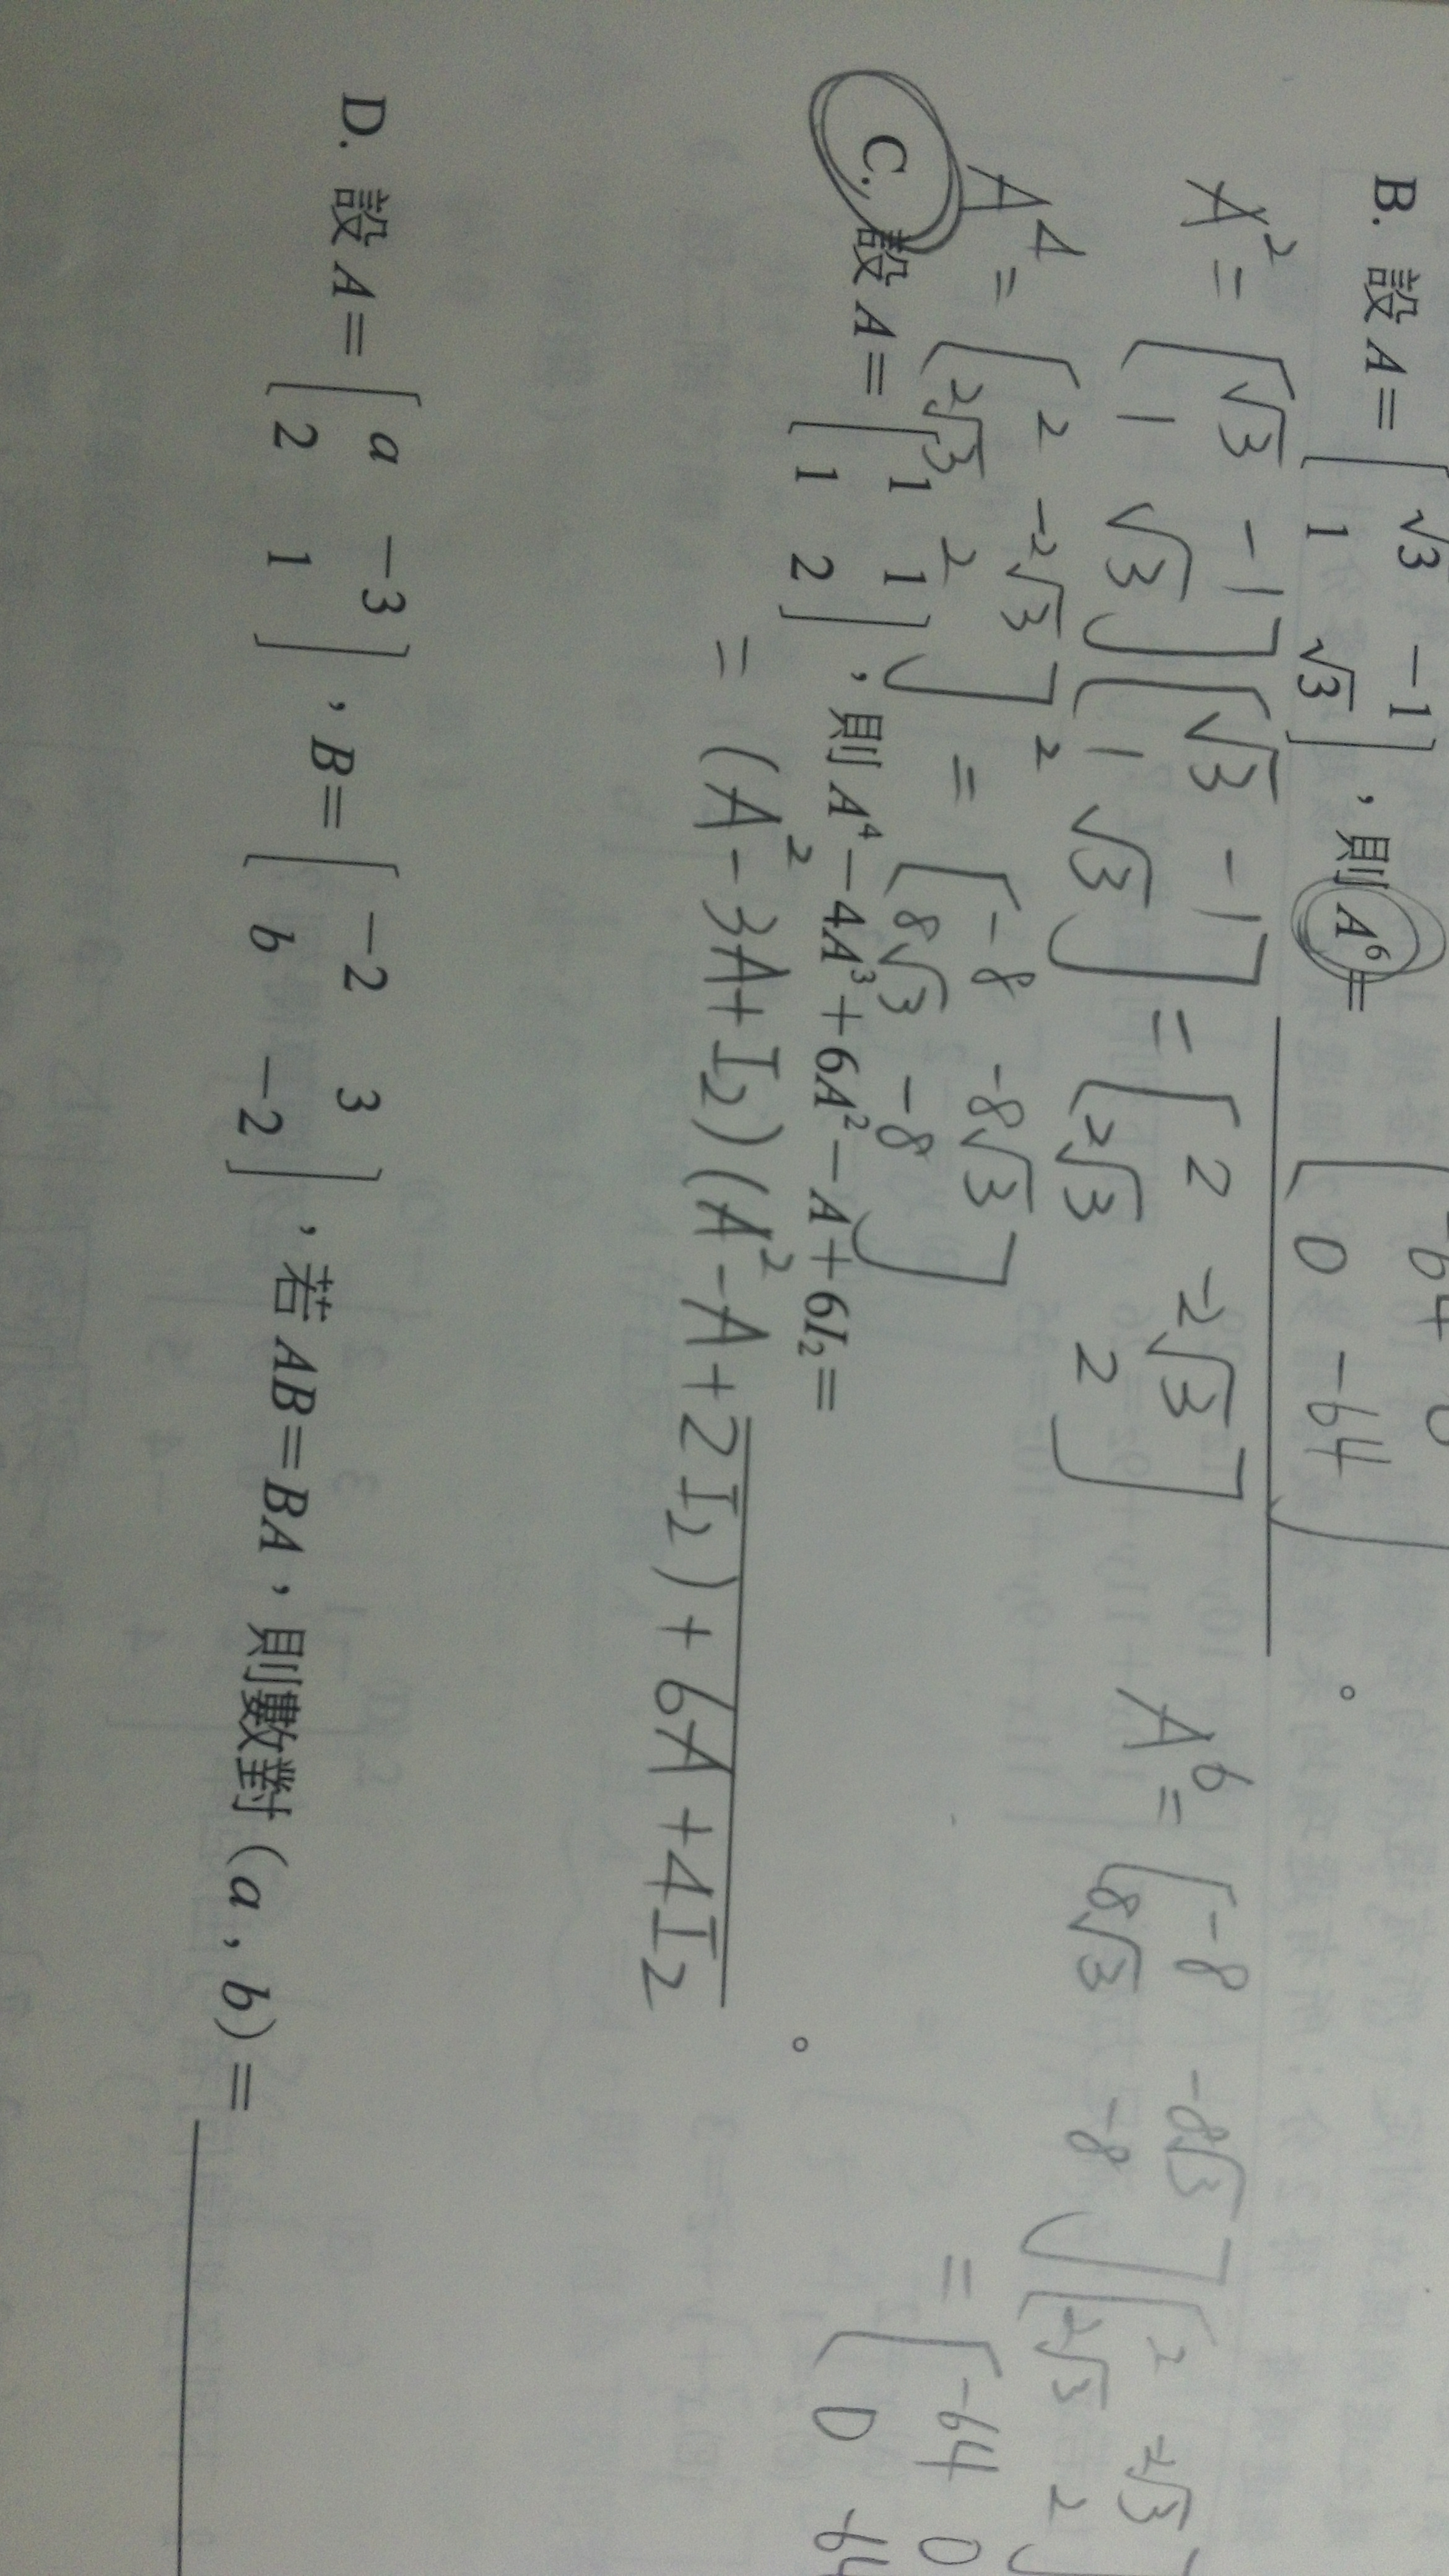 B. 設 A = [√3 -1; 1 √3] , 則 A⁶ = [-64 0; 0 -64] 。
A² = [√3 -1; 1 √3] [√3 -1; 1 √3] = [2 -2√3; 2√3 2]
A⁴ = [2 -2√3; 2√3 2]² = [-8 -8√3; 8√3 -8]
A⁶ = [-8 -8√3; 8√3 -8] [2 -2√3; 2√3 2]
= [-64 0; 0 -64]
C. 設 A = [1 1; 1 2] , 則 A⁴ - 4A³ + 6A² - A + 6I₂ = 。
= (A² - 3A + I₂) (A² - A + 2I₂) + 6A + 4I₂
D. 設 A = [a -3; 2 1] , B = [-2 3; b -2] , 若 AB = BA , 則數對 (a , b) =